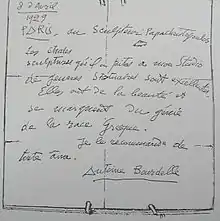 8 d'Avril
1929
PARIS, au Sculpteur Papachristopoulos
Les
sculptures qu'il a faites a mon Studio
de jeunes sont excellentes
Elles ont de la beauté et
se marquent du génie
de la race Grecque.
Je le recommande de
toute âme.
Antoine Bourdelle